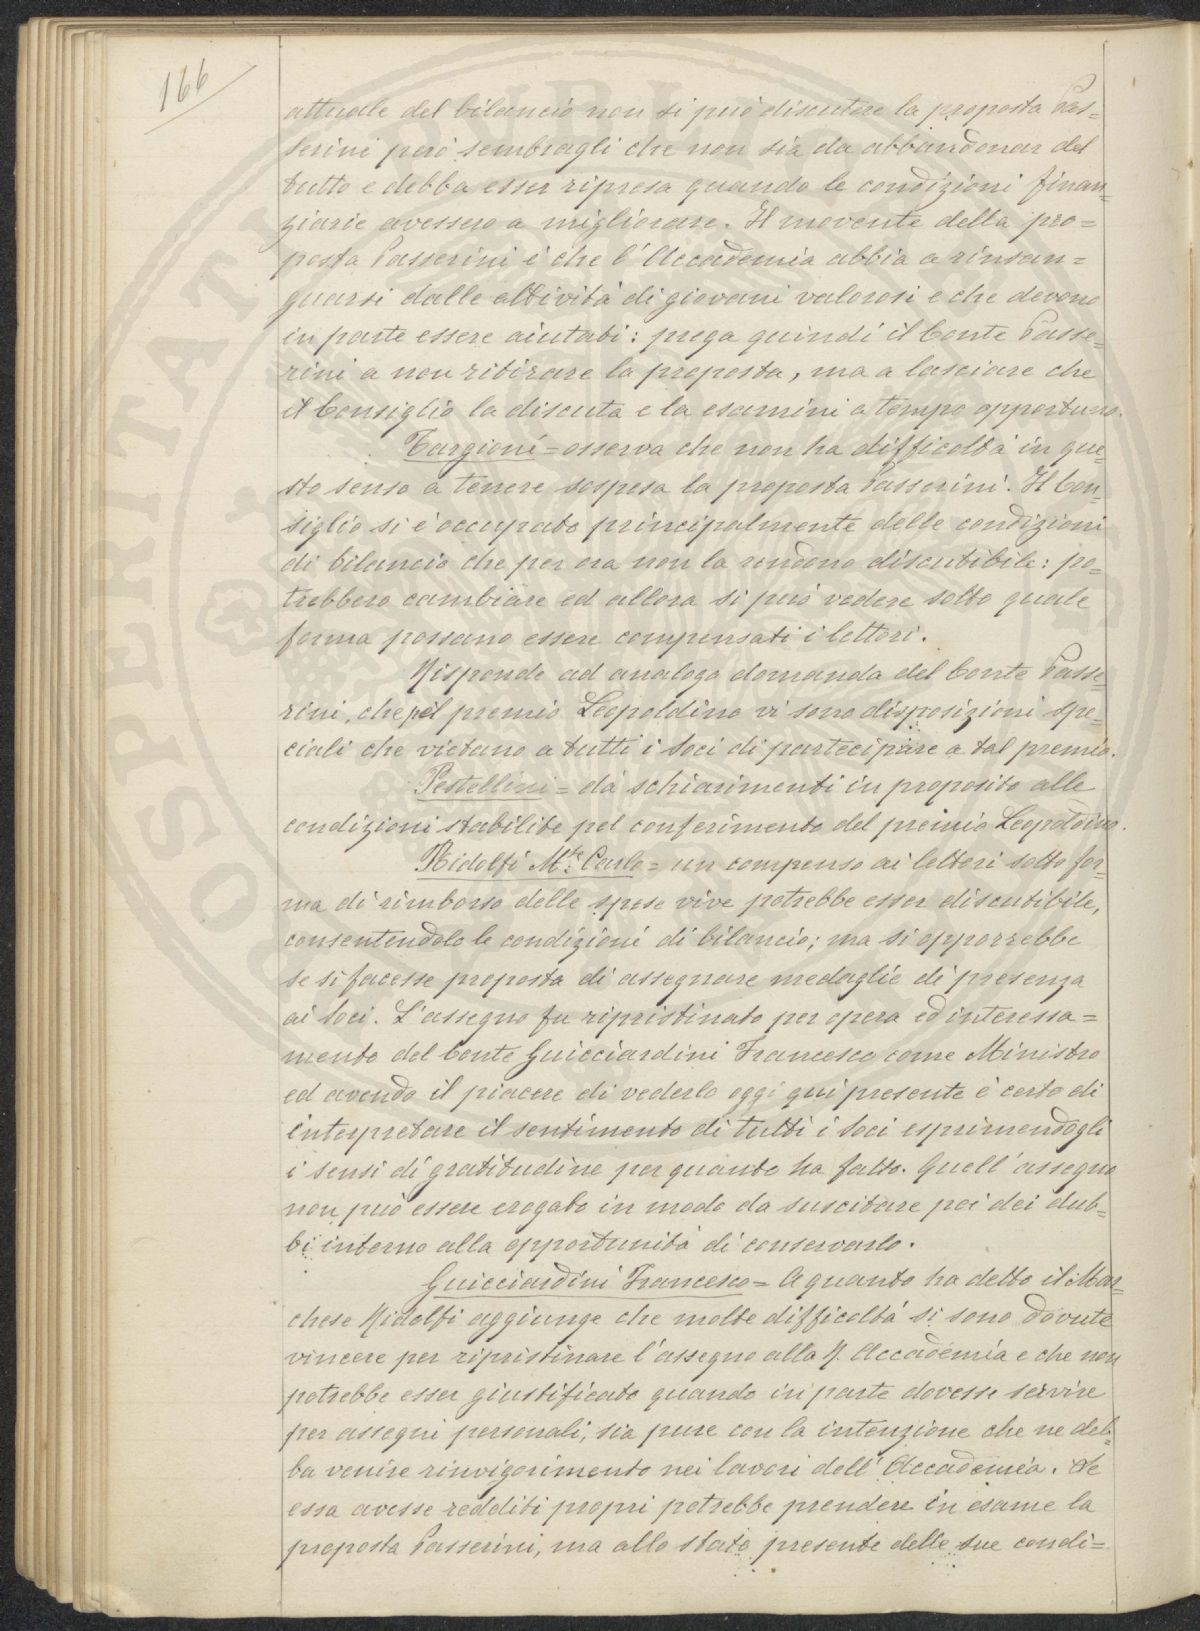 166
attuale del bilancio non si può discutere la proposta Pas=
serini però sembragli che non sia da abbandonar del
tutto e debba esser ripresa quando le condizioni finan=
ziarie avessero a migliorare. Il movente della pro=
posta Passerini è che l'Accademia abbia a rinsan=
guarsi dalle attività di giovani valorosi e che devono
in parte essere aiutati: prega quindi il Conte Passe=
rini a non ritirare la proposta, ma a lasciare che
il Consiglio la discuta e la esamini a tempo opportuno.
Targioni = osserva che non ha difficoltà in que=
sto senso a tenere sospesa la proposta Passerini. Il Con=
siglio si è occupato principalmente delle condizioni
di bilancio che per ora non la rendono discutibile: po=
trebbero cambiare ed allora si può vedere sotto quale
forma possano essere compensati i lettori.
Risponde ad analoga domanda del Conte Passe=
rini, che pel premio Leopoldino vi sono disposizioni spe=
ciali che vietano a tutti i Soci di partecipare a tal premio.
Pestellini = dà schiarimenti in proposito alle
condizioni stabilite pel conferimento del premio Leopoldino.
Ridolfi M.se Carlo = un compenso ai lettori sotto for=
ma di rimborso delle spese vive potrebbe esser discutibile,
consentendolo le condizioni di bilancio; ma si opporrebbe
se si facesse proposta di assegnare medaglie di presenza
ai Soci. L'assegno fu ripristinato per opera ed interessa=
mento del Conte Guicciardini Francesco come Ministro
ed avendo il piacere di vederlo oggi qui presente è certo di
interpretare il sentimento di tutti i Soci esprimendogli
i sensi di gratitudine per quanto ha fatto. Quell'assegno
non può essere erogato in modo da suscitare poi dei dub=
bi intorno alla opportunità di conservarlo.
Guicciardini Francesco = A quanto ha detto il Mar=
chese Ridolfi aggiunge che molte difficoltà si sono dovute
vincere per ripristinare l'assegno alla R. Accademia e che non
potrebbe esser giustificato quando in parte dovesse servire
per assegni personali, sia pure con la intenzione che ne deb=
ba venire rinvigorimento nei lavori dell'Accademia. Se
essa avesse redditi propri potrebbe prendere in esame la
proposta Passerini, ma allo stato presente delle sue condi=